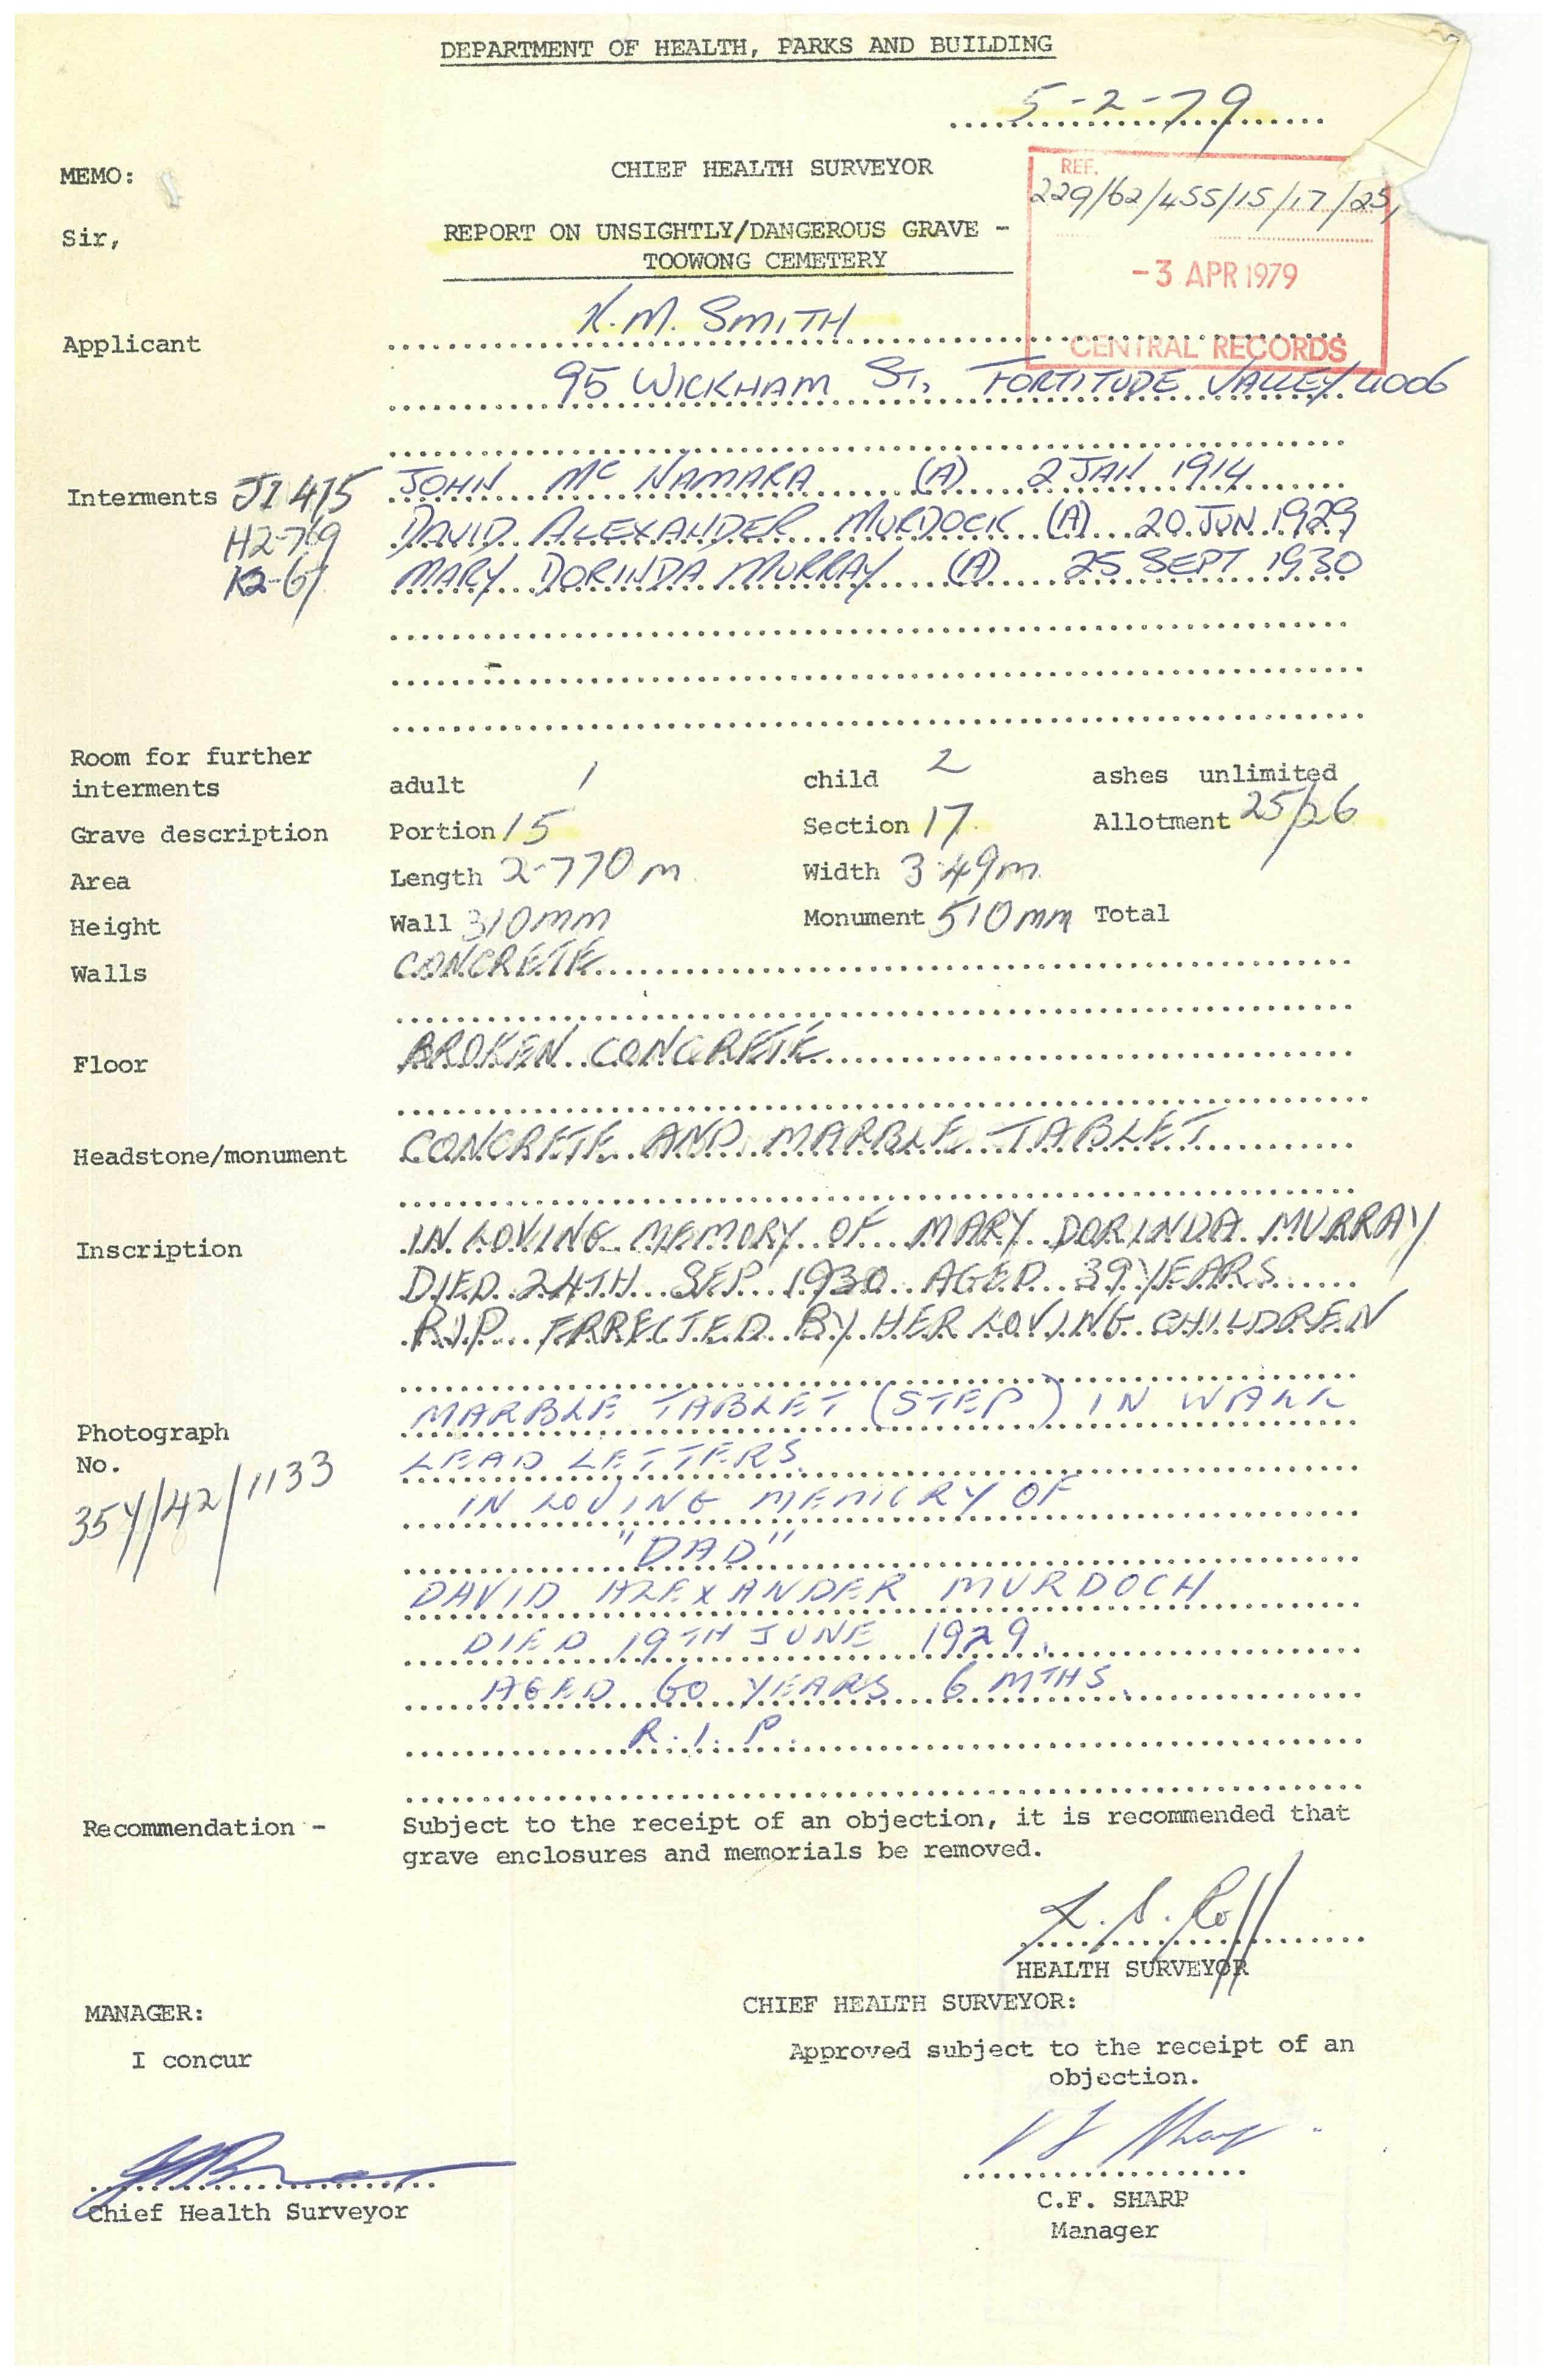 DEPARTMENT OF HEALTH, PARKS AND BUILDING
5-2-79
MEMO:
CHIEF HEALTH SURVEYOR
REF.
229/62/455/15/17/25
Sir,
REPORT ON UNSIGHTLY/DANGEROUS GRAVE -
TOOWONG CEMETERY
-3 APR 1979
CENTRAL RECORDS
Applicant K.M. SMITH
95 WICKHAM ST, FORTITUDE VALLEY 4006
Interments J1 415 JOHN McNAMARA (A) 2 JAN 1914
H2-769 DAVID ALEXANDER MURDOCK (A) 20 JUN 1929
K2-67 MARY DORINDA MURRAY (A) 25 SEPT 1930
Room for further
interments adult 1 child 2 ashes unlimited
Grave description Portion 15 Section 17 Allotment 25/26
Area Length 2-770m Width 3.49m
Height Wall 310mm Monument 510mm Total
Walls CONCRETE
Floor BROKEN CONCRETE
Headstone/monument CONCRETE AND MARBLE TABLET
Inscription IN LOVING MEMORY OF MARY DORINDA MURRAY
DIED 24TH SEP 1930 AGED 39 YEARS
R.I.P. ERRECTED BY HER LOVING CHILDREN
MARBLE TABLET (STEP) IN WALL
Photograph
No. LEAD LETTERS
354/42/1133
IN LOVING MEMORY OF
"DAD"
DAVID ALEXANDER MURDOCH
DIED 19TH JUNE 1929.
AGED 60 YEARS 6 MTHS.
R.I.P.
Recommendation - Subject to the receipt of an objection, it is recommended that
grave enclosures and memorials be removed.
HEALTH SURVEYOR
MANAGER:
I concur
Chief Health Surveyor
CHIEF HEALTH SURVEYOR:
Approved subject to the receipt of an
objection.
C.F. SHARP
Manager